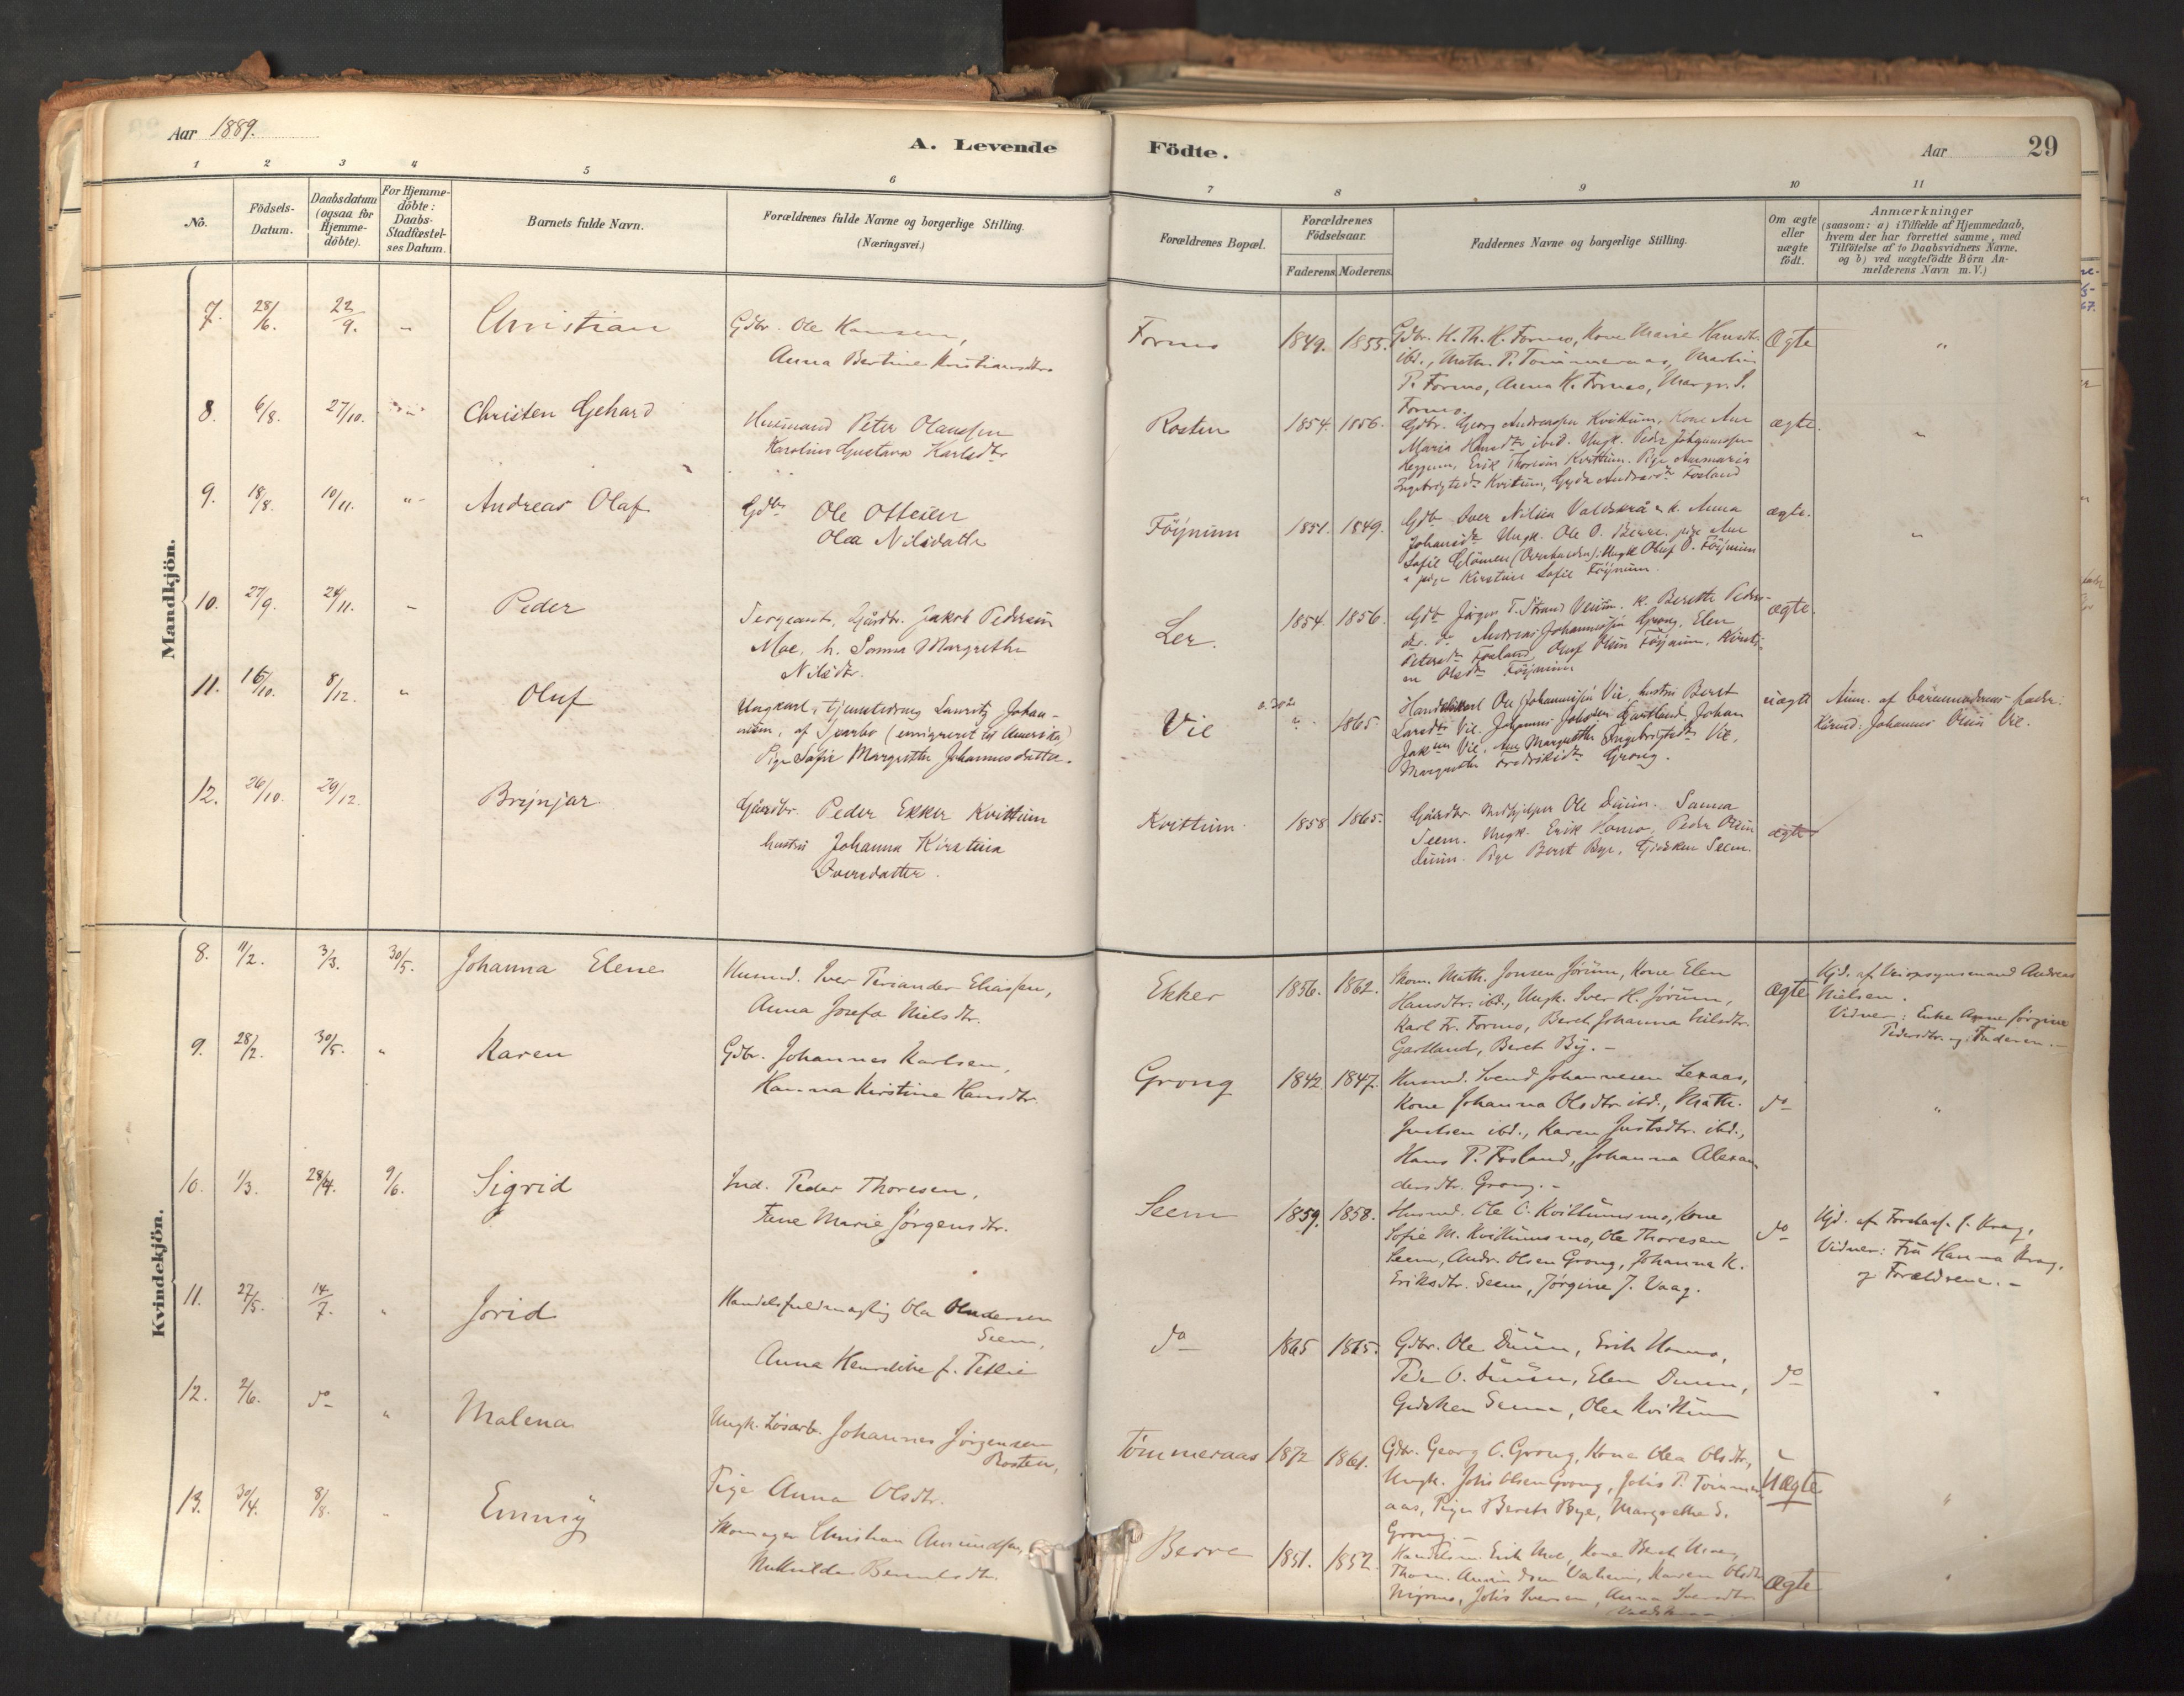 Aar 1889.
A. Levende
Födte.
Aar
29
1
2
3
4
5
6
7
8
9
10
11
No.
Födsels-
Datum.
Daabsdatum
(ogsaa for
Hjemme-
döbte).
For Hjemme-
döbte:
Daabs-
Stadfæstel-
ses Datum.
Barnets fulde Navn.
Forældrenes fulde Navne og borgerlige Stilling.
(Næringsvei.)
Forældrenes Bopæl.
Forældrenes
Födselsaar.
Faderens.
Moderens.
Faddernes Navne og borgerlige Stilling.
Om ægte
eller
uægte
födt.
Anmærkninger
(saasom: a) i Tilfælde af Hjemmedaab,
hvem der har forrettet samme, med
Tilföielse af to Daabsvidners Navne,
og b) ved uægtefödte Börn An-
melderens Navn m. V.)
Mandkjön.
7. 28/6. 22/9. " Christian
Gdbr. Ole Hansen,
Anna Bertine Kristiansdtr.
Formo 1849. 1855.
Gdbr. H. Th. H. Formo, Kone Marie Hansdtr.
ibd., Math. P. Tömmeraas, Martin
P. Formo, Anna K. Formo, Margr. S.
Formo.
Ægte "
8. 6/8. 27/10. Christen Gehard
Husmand Peter Olaussen
Karoline Gustava Karlsdtr
Rosten 1854. 1856.
Gdbr. Georg Andreassen Kvittum, Kone Ane
Maria Hansdtr ibid. Ungk. Peder Johannessen
Erik Thoresen Kvittum. Pige Annmaria
Ingebrigtsdr Kvittum, Gyda Andreasdr Fosland
ægte. "
9. 18/8. 10/11. " Andreas Olaf
Gdbr Ole Ottesen
Olea Nilsdatter
Föÿnum 1851. 1849.
Gdbr Iver Nilsen Valdskrå & k. Anna
Johansdr Ungk. Ole O. Berre. pige Ane
Sofie Glömen (Overhalden); Ungk Oluf O. Föÿnum
& pige Kirstine Sofie Föÿnum.
ægte. "
10. 27/9. 24/11. " Peder
Sergeant, Gårdbr. Jakob Pedersen
Moe, h. Sanna Margrethe
Nilsdtr.
Ler. 1854. 1856.
Gdbr Jörgen T. Strand Veiem. k. Berethe Peders-
dr. Andreas Johannessen Grong, Elen
Petersdr Fosland, Oluf Olsen Föÿnum, Kirsti-
ne Olsdr Föÿnum
ægte.
11. 16/10. 8/12. " Oluf
Ungkarl, tjenestedreng Lauritz Johan-
nesen, af Sparbo (emigreret til Amerika)
Pige Sofie Margrethe Johannesdatter.
Vie " 1865.
Handelskarl Ole Johannessen Vie, hustru Beret
Larsdtr Vie. Johannes Johnsen Gartland, Johan
Jaksen Vie, Ane Margrethe Ingebrigtsdr Vie,
Margrethe Fredriksdr Grong.
uægte
Anm. af barnemoderens fader:
Kårmd: Johannes Olsen Vie.
12. 26/10. 29/12. Brynjar
Gårdbr. Peder Ekker Kvittum
hustru Johanna Kirstina
Iversdatter.
Kvittum 1858 1865.
Gårdbr. Medhjelper Ole Duun. Sanna
Seem. Ungk. Erik Homo, Peder Olsen
Duun. Pige Beret Bye, Gjesken Seem.
ægte
Kvindekjön.
8. 11/2. 3/3. 30/5. Johanna Elene
Husmd. Iver Periander Eliassen,
Anna Josefa Nielsdtr.
Ekker 1856. 1862.
Skom. Math. Jonsen Jörum, Kone Elen
Hansdtr. ibd., Ungk. Iver H. Jörum,
Karl Fr. Formo, Bereth Johanna Nilsdtr.
Gartland, Bereth By. -
Ægte
Hjd. af Veiopsynsmand Andreas
Nielsen.
Vidner: Enke Anne Jörgine
Pedersdtr. og Faderen. -
9. 28/2. 30/5. " Karen
Gdbr. Johannes Karlsen,
Hanna Kirstine Hansdtr.
Grong 1842. 1847.
Husmd. Svend Johannesen Lexaas,
Kone Johanna Olsdtr. ibd., Math.
Justsen ibd., Karen Justsdtr. ibd.,
Hans P. Fosland, Johanna Alexan-
dersdtr. Grong. -
do "
10. 1/3. 28/4. 9/6. Sigrid
Ind. Peder Thoresen,
Fane Marie Jörgensdtr.
Seem 1859. 1858.
Husmd. Ole C. Kvittumsmo, Kone
Sofie M. Kvittumsmo, Ole Thoresen
Seem, Andr. Olsen Grong, Johanna K.
Eriksdtr. Seem, Jörgine J. Vaag.
do
Hjd. af J. Krag,
Vidner: Fru Hanna Krag,
og Forældrene. -
11. 27/5. 14/7. " Jorid
Handelsfuldmægtig Ola Andersen
Seem,
Anna Hendrikke f. Tetlie
do 1865 1865.
Gdbr. Ole Duun, Erik Homo,
Peder O. Duun, Elen Duun,
Gjesken Seem, Olea Kvittum
do "
12. 2/6. do " Malena
Ungk. Lösarb. Johannes Jörgensen
Rosten,
Pige Anna Olsdtr.
Tömmeraas 1872 1861.
Gdbr. Georg C. Grong, Kone Olea Olsdtr,
Ungk. Johs Olsen Grong, Johs P. Tömmer-
aas, Piger Bereth Bye, Margrethe S.
Grong. -
Uægte "
13. 30/4. 8/8. Emmÿ
Skomager Christian Amundsen,
Mathilde Berntsdtr.
Berre 1851. 1852.
Handelsm. Erik Moe, Kone Bereth Moe,
Thom. Amundsen Værheim, Karen Olsdtr
Johs Iversen, Anna Iversdtr
Ægte "